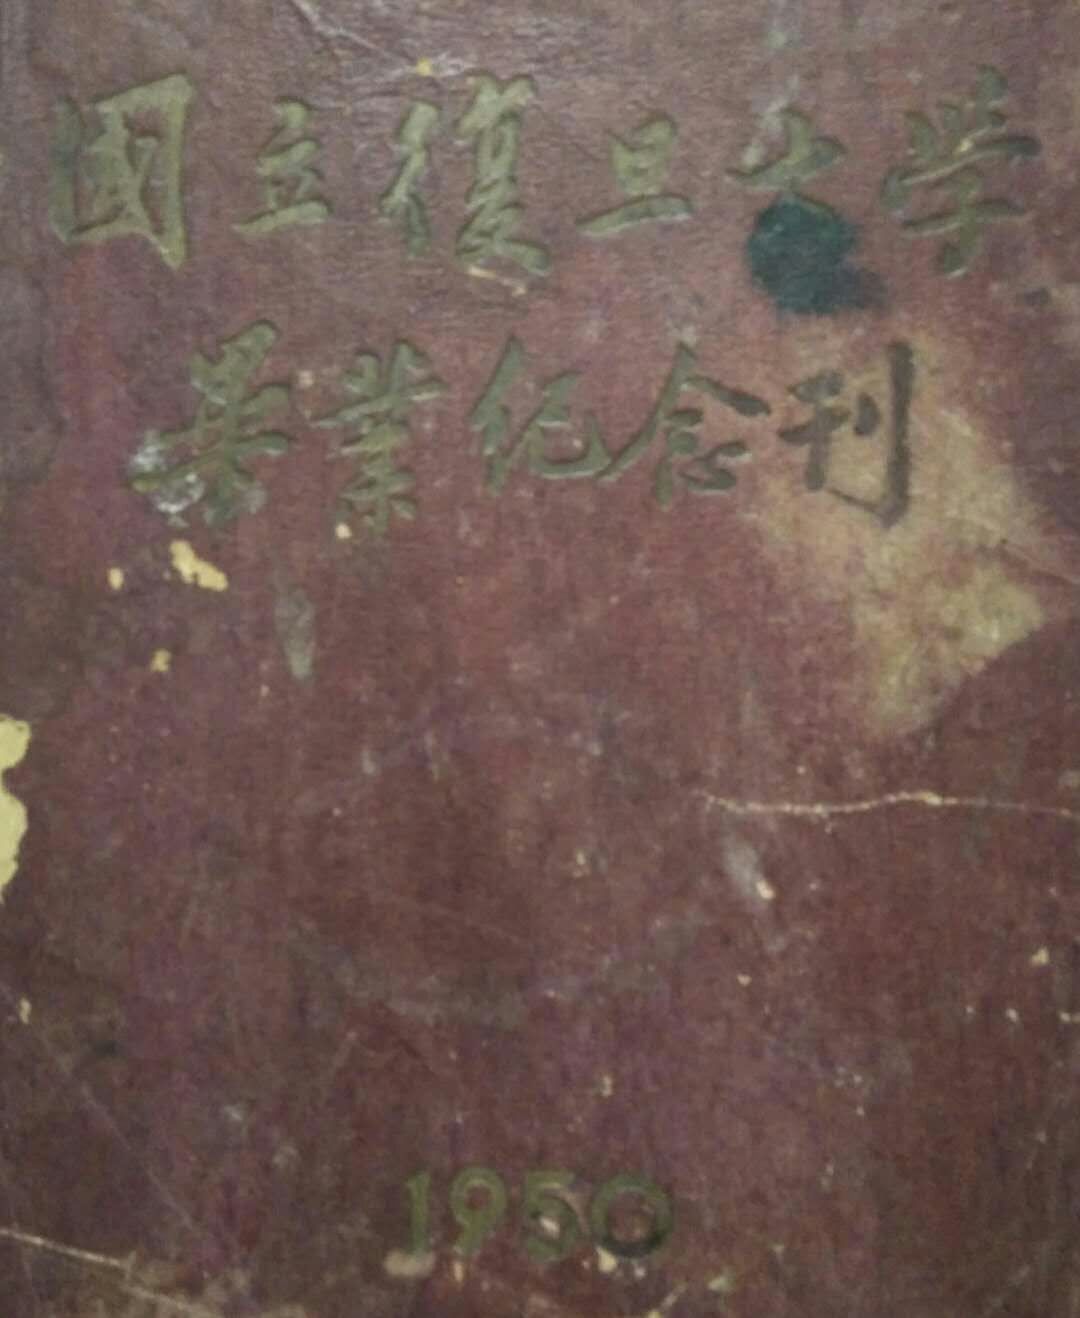 國立復旦大學
畢業紀念刊
1950